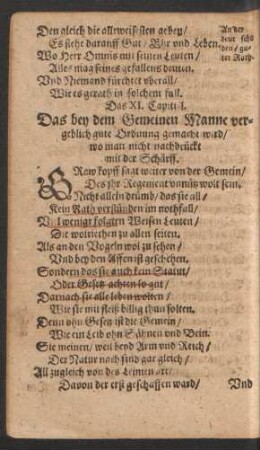 Den gleich die allweisesten geben/
Es stehe darauff Gut/ Ehr vnd Leben.
Wo Herr Omnis mit seinen Leuten/
Alles mag seines gefallens deuten.
Vnd Niemand fürchtet vberall/
Wie es gerath in solchem fall.
An der
leut
gute Rath
Das XI. Capittel.
Das bey dem Gemeinen Manne ver-
geblich gute Ordnung gemacht wird/
wo man nicht nachdrückt
mit der Schärff.
Graw kopff sagt weiter von der Gemein/
Des ihr Regement vnnütz wolt sein.
Nicht allein drumb/ das sie all/
Kein Rath verstünden im nothfall/
Vnd wenig folgten Weisen Leuten/
Die wol riethen zu allen seiten.
Als an den Vogeln wol zu sehen/
Vnd bey den Affen ist geschehen.
Sondern das sie auch kein Statut/
Oder Gesetz achten so gut/
Darnach sie alle leben wolten/
Wie sie mit fleiß billig thun solten.
Denn ohn Gesetz ist die Gemein/
Wie ein Leib ohn Sehnen vnd Bein.
Sie meinen/ weil beyd Arm vnd Reich/
Der Natur nach sind gar gleich/
All zugleich von des Leimen art/
Davon der erst geschaffen ward/
Vnd